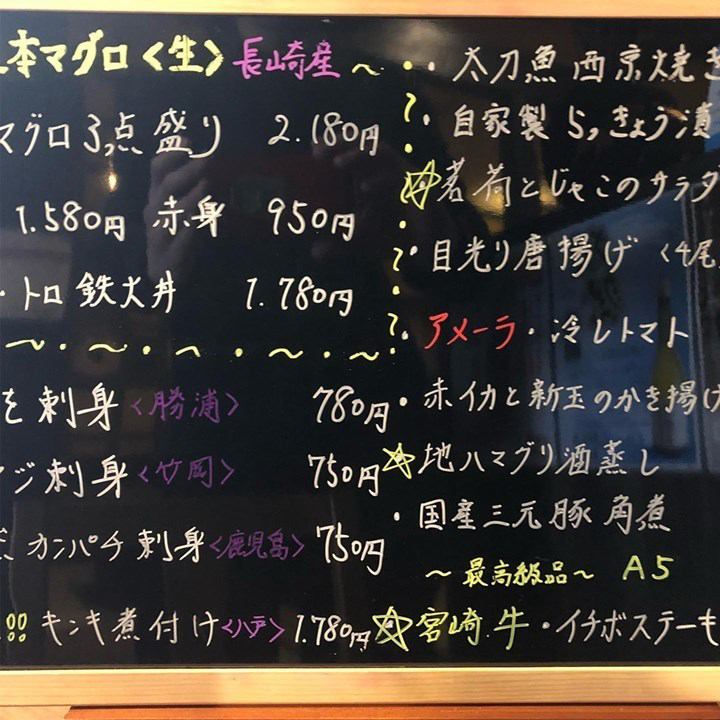 本マグロ〈生〉長崎産～
マグロ3点盛り 2.180円
1.580円 赤身 950円
・トロ鉄火丼 1.780円
を刺身〈勝浦〉 780円
ジ刺身〈竹岡〉 750円
カンパチ刺身〈鹿児島〉 750円
キンキ煮付け〈八戸〉 1.780円
・太刀魚西京焼き
・自家製らっきょう漬
☆茗荷とじゃこのサラダ
・目光り唐揚げ〈4尾
・アメーラ・冷しトマト
・赤イカと新玉のかき揚げ
☆地ハマグリ酒蒸し
・国産三元豚角煮
～最高級品～ A5
☆宮崎牛・イチボステーキ